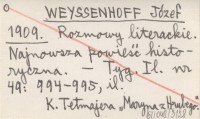 WEYSSENHOFF Józef
1909. Rozmowy literackie.
Najnowsza powieść histo-
ryczna. Tyg. Il. nr
49: 994-995, il.
K. Tetmajera "Maryna z Hrubego".